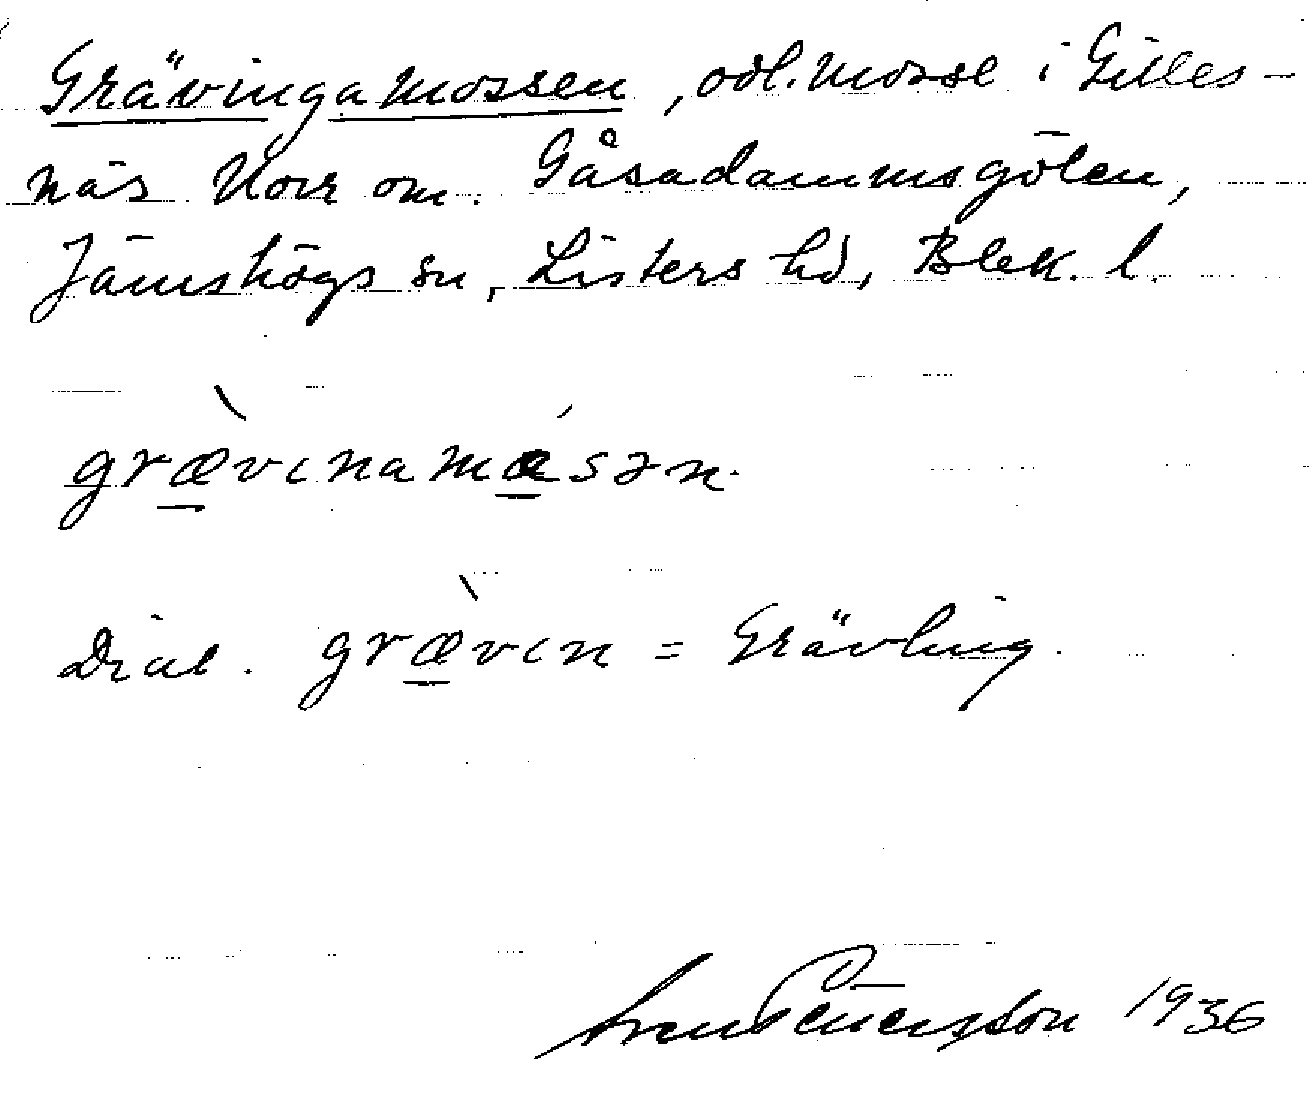 Grävingamossen, odl. mosse i Gilles-
näs Norr om Gåsadammsgölen,
Jämshögs sn, Listers hd, Blek. l.
grævɩnamæsən.
Dial. grævɩn = Grävling.
Sven Petersson 1936